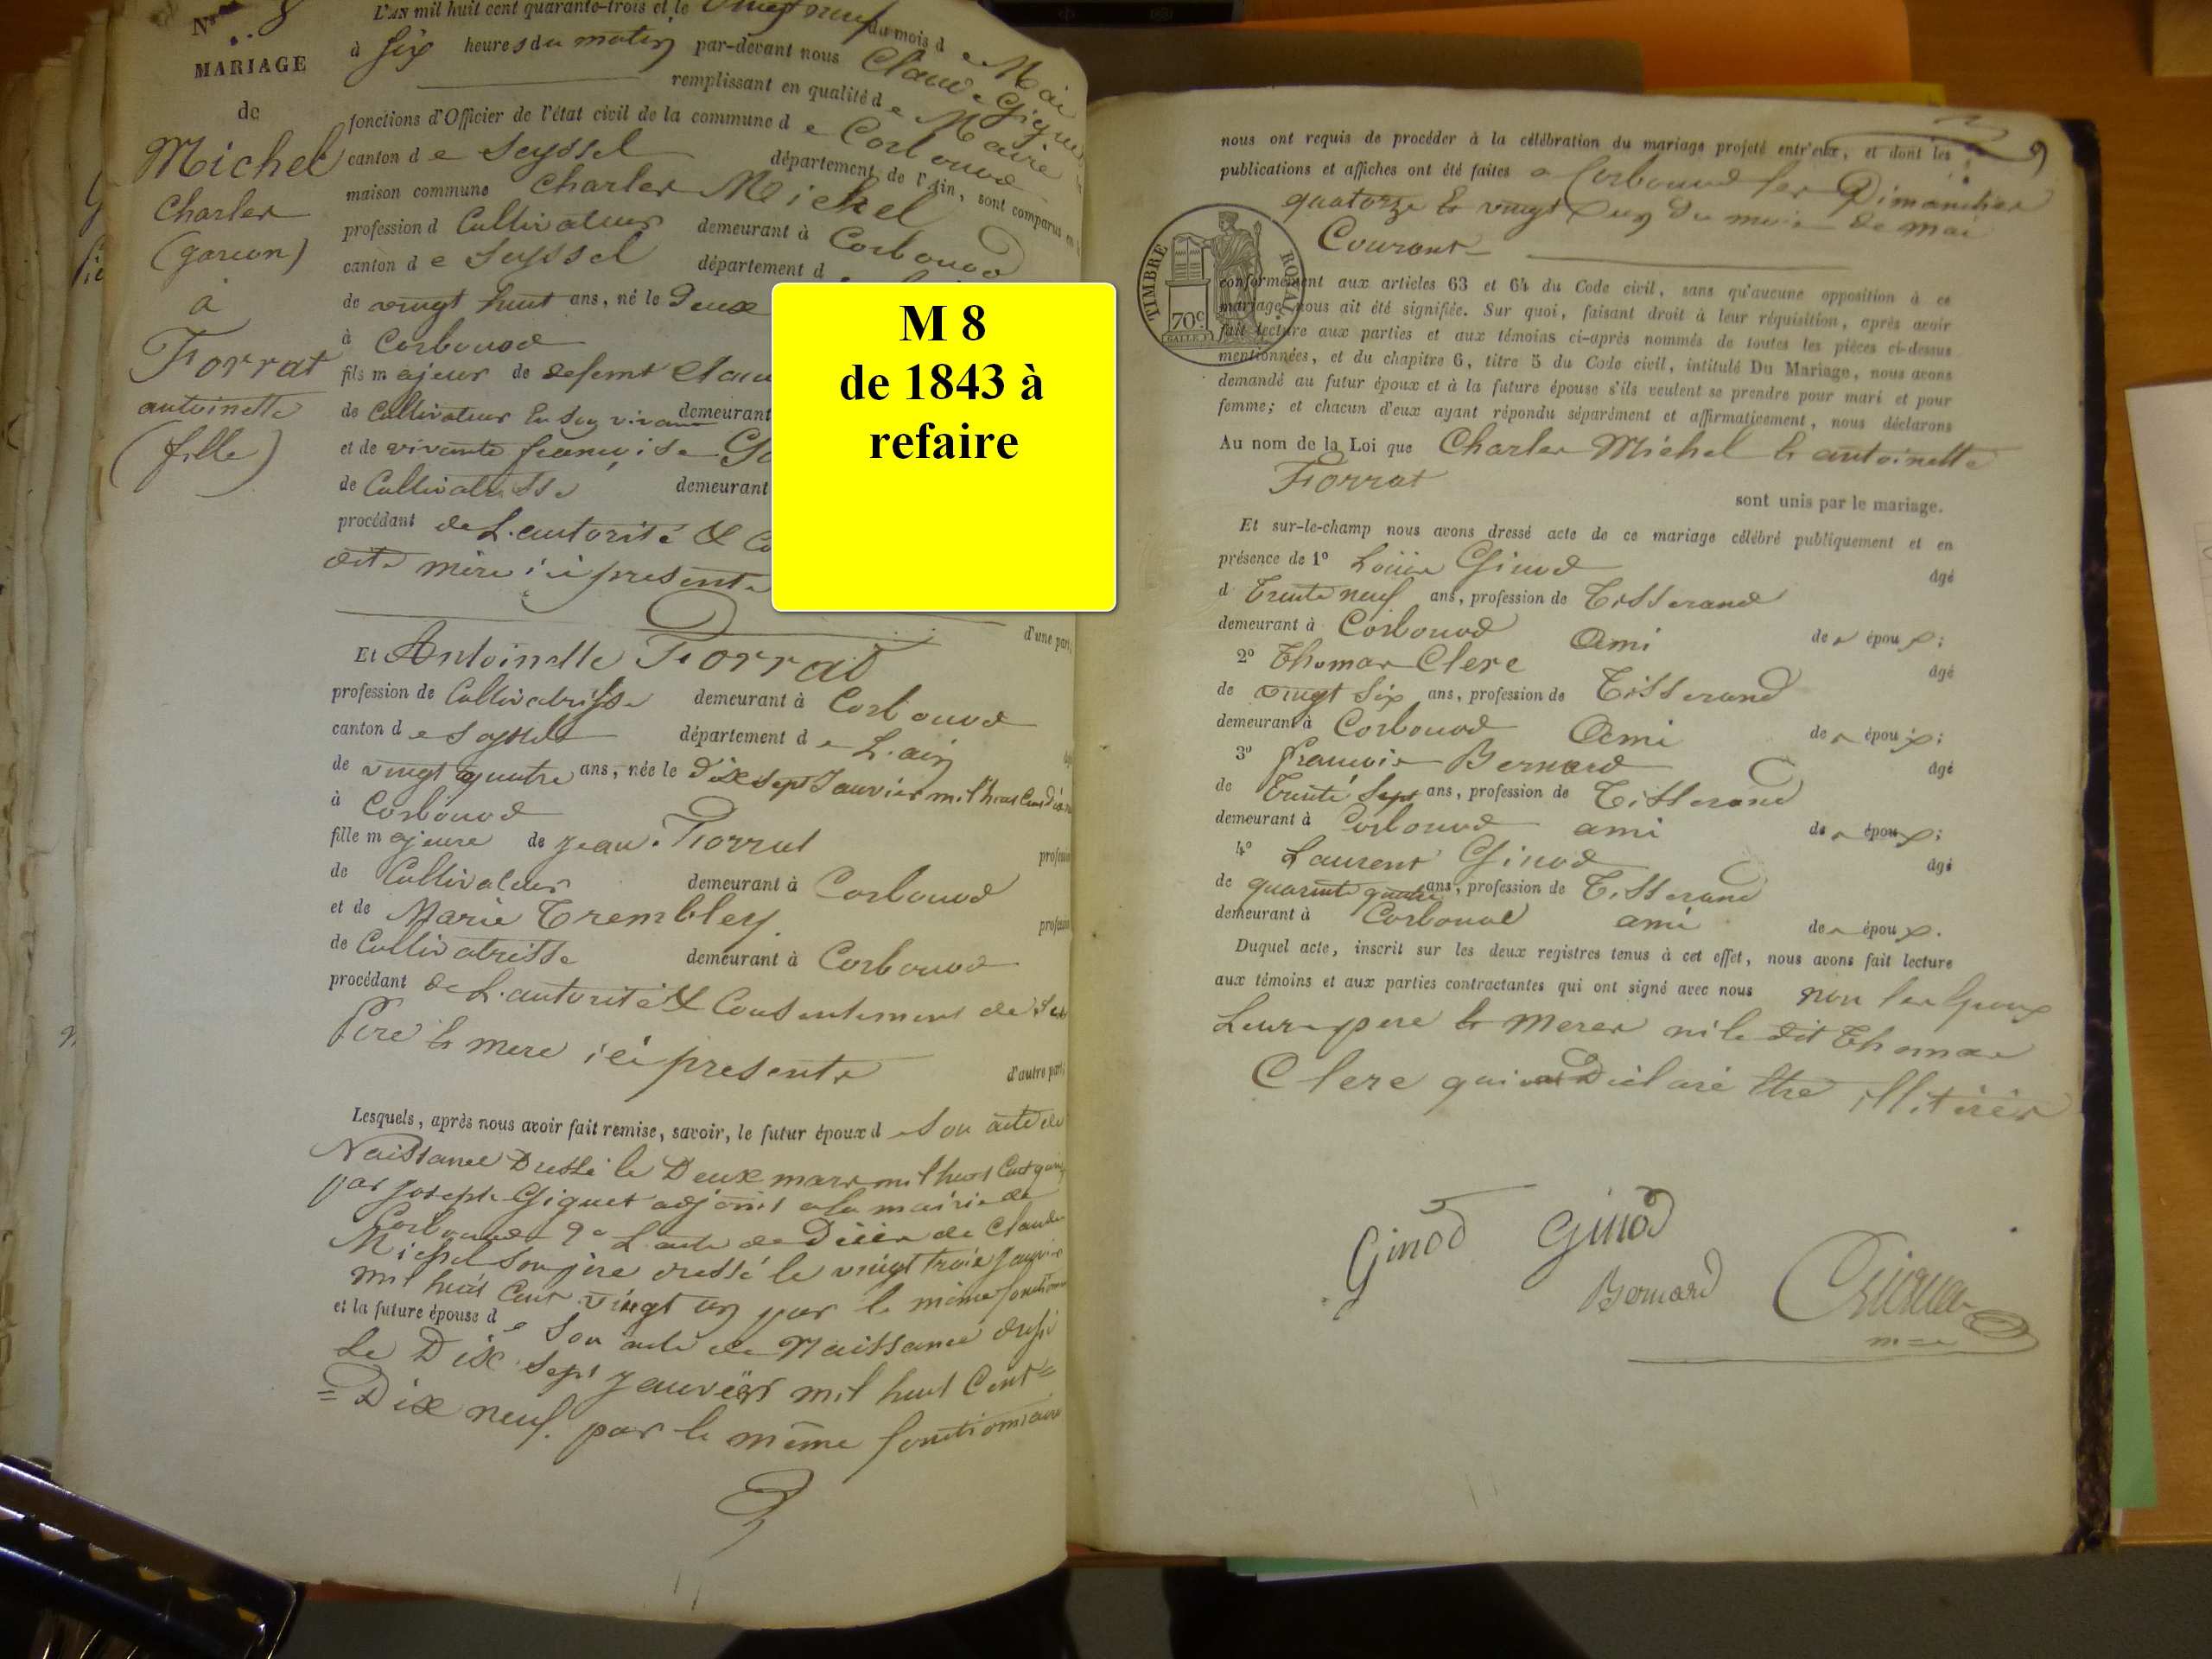 N° 8
MARIAGE
de
Michel
Charles
(garcon)
à
Forrat
antoinette
(fille)
L'AN mil huit cent quarante-trois et le vingt neuf du mois de Mai
à six heures du matin par-devant nous Claude Giguet
remplissant en qualité de Maire
fonctions d'Officier de l'état civil de la commune de Corbonod
canton de Seyssel département de l'Ain, sont comparus en
maison commune Charles Michel
profession d Cultivateur demeurant à Corbonod
canton de Seyssel département d
de vingt huit ans, né le Deux
à Corbonod
fils majeur de defunt
de Cultivateur En son vivant demeurant
et de vivante françoise
de Cultivatrisse demeurant
procédant de L'autorité &
dite mère ici presente
d'une part,
M 8
de 1843 à
refaire
Et Antoinette Forrat
profession de Cultivatrisse demeurant à Corbonod
canton de Seyssel département de L'ain
de vingt quatre ans, née le dix sept Janvier mil huit Cent
à Corbonod
fille majeure de jean Forrat
de Cultivateur demeurant à Corbonod
et de Marie Trembley.
de Cultivatrisse demeurant à Corbonod
procédant de L'autorité & Consentement de ses
Pere et mere ici presente
d'autre part;
Lesquels, après nous avoir fait remise, savoir, le futur époux de Son acte de
Naissance Dressé le Deux mars mil huit Cent
par joseph Giguet adjoint a la mairie de
Corbonod 2° L'acte de Décès de Claude
Michel son père dressé le vingt trois janvier
mil huit Cent vingt un par le même
et la future épouse de Son acte de Naissance dressé
le Dix sept janvier mil huit Cent =
= Dix neuf. par le même fonctionnaire
nous ont requis de procéder à la célébration du mariage projeté entr'eux, et dont les
publications et affiches ont été faites a Corbonod les Dimanches
quatorze et vingt un du mois de mai
Courant
TIMBRE ROYAL
70c
conformément aux articles 63 et 64 du Code civil, sans qu'aucune opposition à ce
mariage nous ait été signifiée. Sur quoi, faisant droit à leur réquisition, après avoir
fait lecture aux parties et aux témoins ci-après nommés de toutes les pièces ci-dessus
mentionnées, et du chapitre 6, titre 5 du Code civil, intitulé Du Mariage, nous avons
demandé au futur époux et à la future épouse s'ils veulent se prendre pour mari et pour
femme; et chacun d'eux ayant répondu séparément et affirmativement, nous déclarons
Au nom de la Loi que Charles Michel et antoinette
Forrat
sont unis par le mariage.
Et sur-le-champ nous avons dressé acte de ce mariage célébré publiquement et en
présence de 1° Louis Ginod âgé
d Trente neuf ans, profession de Tisserand
demeurant à Corbonod Ami de époux;
2° Thomas Clerc âgé
de vingt six ans, profession de Tisserand
demeurant à Corbonod Ami de époux;
3° françois Bernard âgé
de Trente Sept ans, profession de Tisserand
demeurant à Corbonod ami de époux;
4° Laurent Ginod âgé
de quarante quatre ans, profession de Tisserand
demeurant à Corbonod ami de époux.
Duquel acte, inscrit sur les deux registres tenus à cet effet, nous avons fait lecture
aux témoins et aux parties contractantes qui ont signé avec nous non les Epoux
Leurs pere et meres ni le dit Thomas
Clerc qui Déclaré Etre illitérés
Ginod Ginod
Bernard